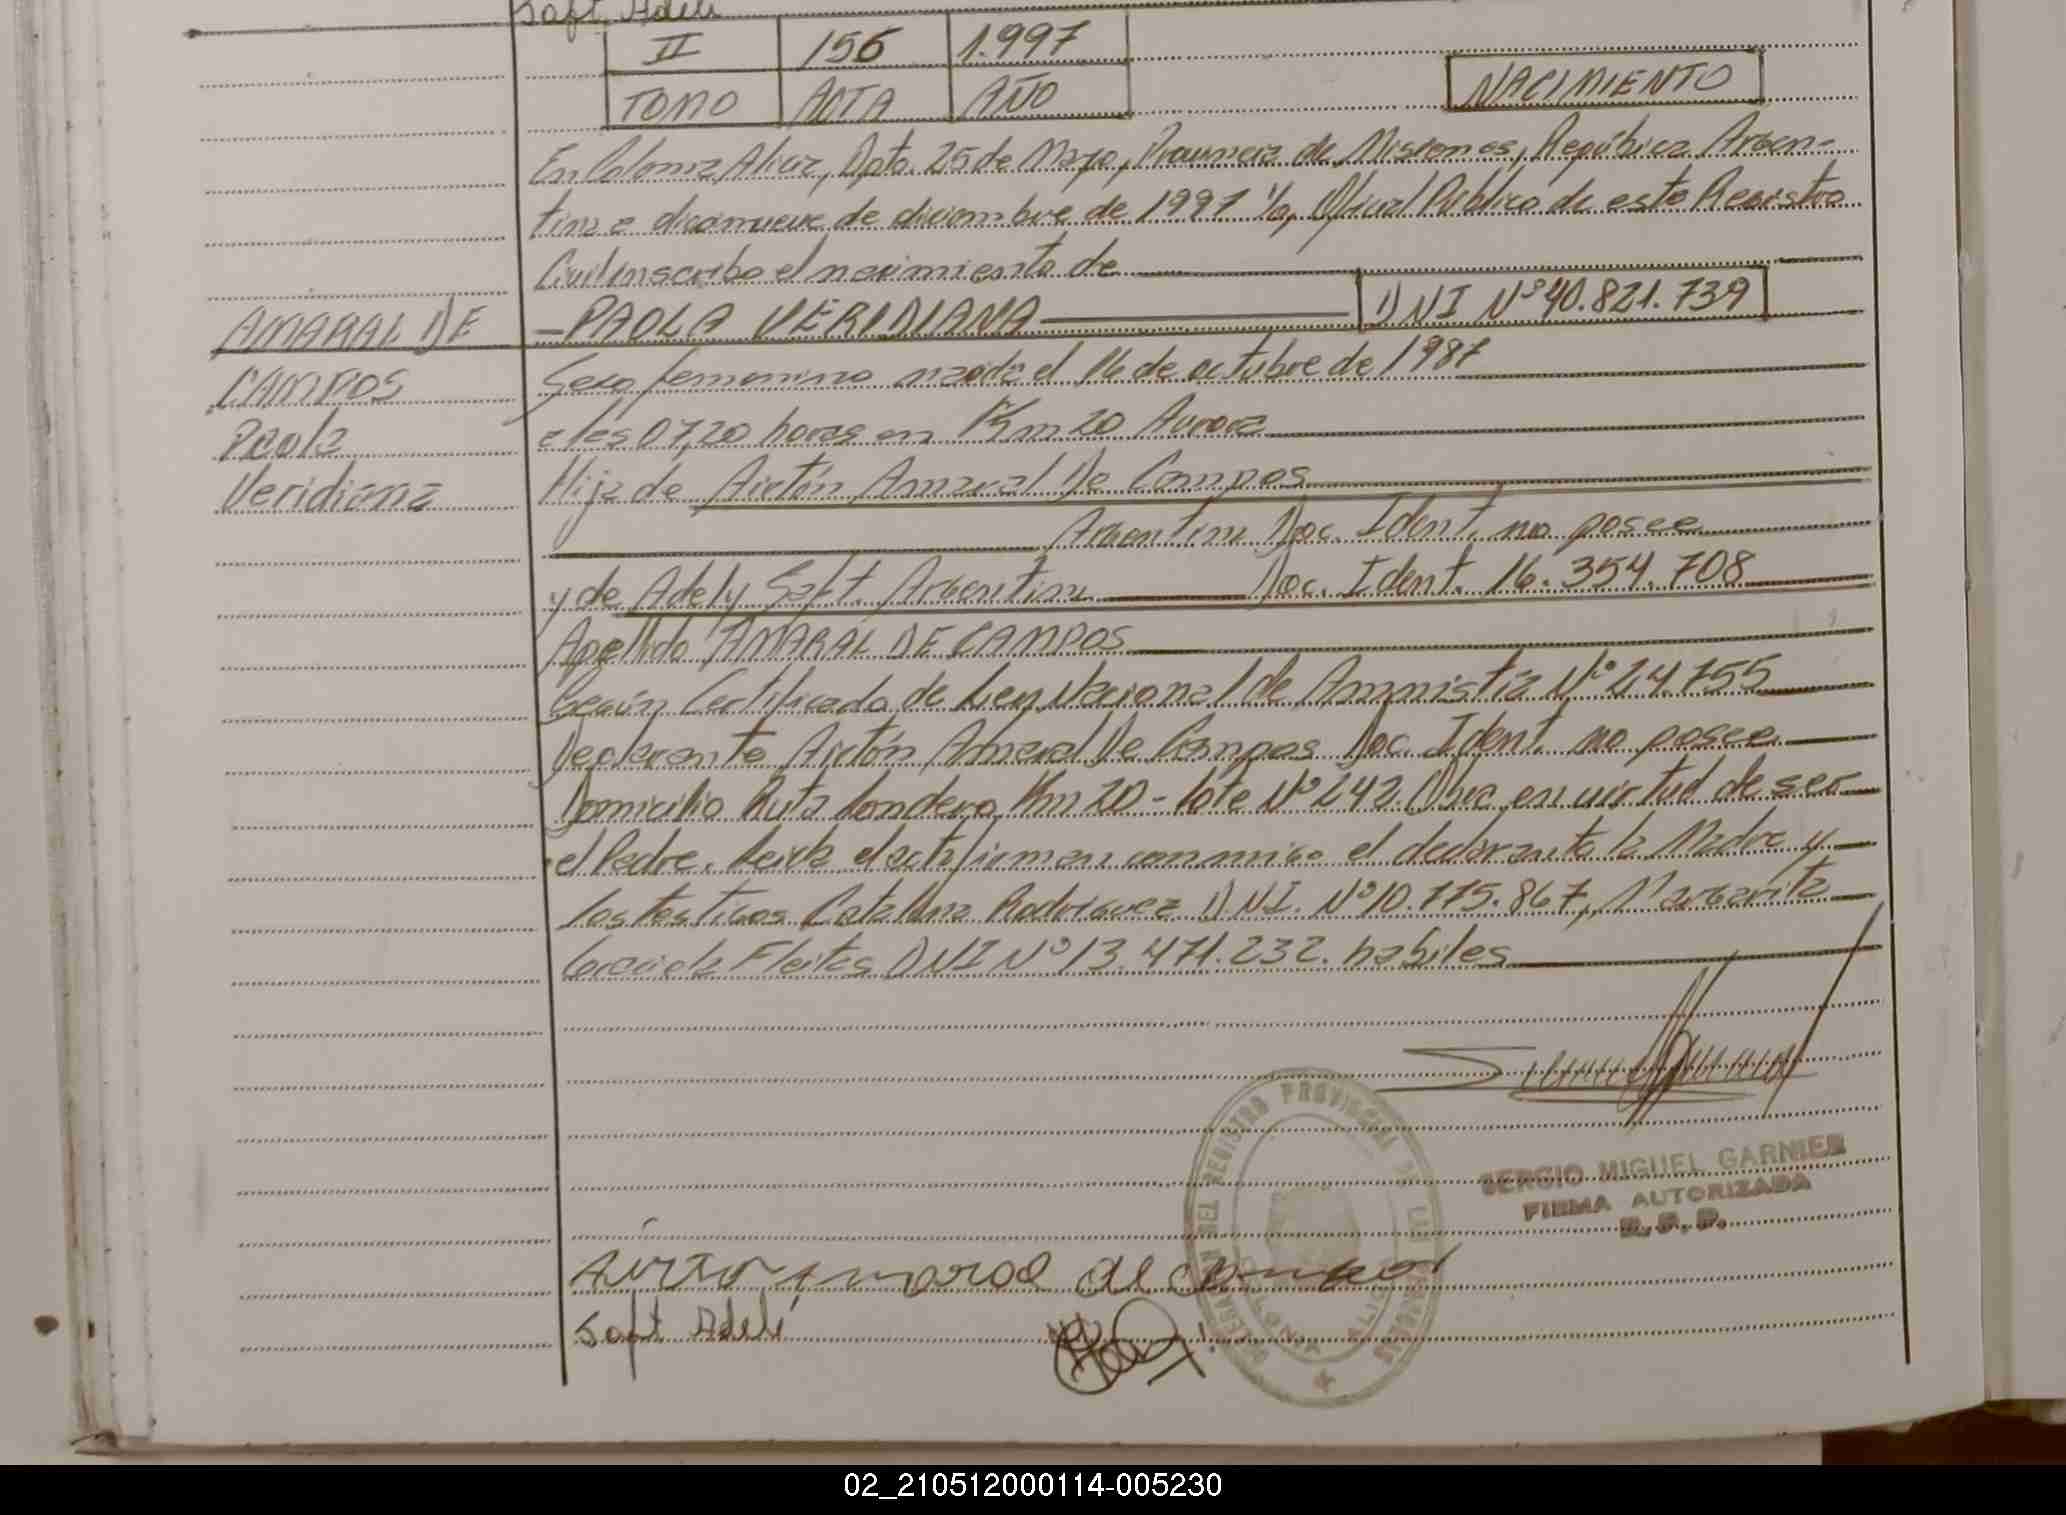 Saft. Adeli
II 156 1.997
TOMO ACTA AÑO
NACIMIENTO
En Colonia Alicia, Dpto. 25 de Mayo, Provincia de Misiones, República Argen-
tina a diecinueve de diciembre de 1997 Yo, Oficial Público de este Registro
Civil inscribo el nacimiento de
AMARAL DE
PAOLA VERIDIANA DNI Nº 40.821.739
CAMPOS
Sexo femenino nacida el 16 de octubre de 1987
Paola
a las 07,20 horas en Km 20 Aurora
Veridiana
Hija de Airtón Amaral De Campos
Argentina Doc. Ident. no posee
y de Adely Saft. Argentina Doc. Ident. 16.354.708
Apellido AMARAL DE CAMPOS
Según Certificado de Ley Nacional de Amnistía Nº 24.755
Declarante Airtón Amaral De Campos Doc. Ident. no posee
Domicilio Ruta Costera Km 20 - lote Nº 242. Obra en virtud de ser
el Padre. Leída el acta firman conmigo el declarante la Madre y
los testigos Catalina Rodriguez D.N.I. Nº 10.775.867, Margarita
Fleitas DNI Nº 13.471.232. habiles
SERGIO MIGUEL GARNIER
FIRMA AUTORIZADA
R.P.P.
DEL REGISTRO PROVINCIAL DE LAS PERSONAS
COLONIA ALICIA
Airton Amaral de Campos
Saft Adeli
02_210512000114-005230